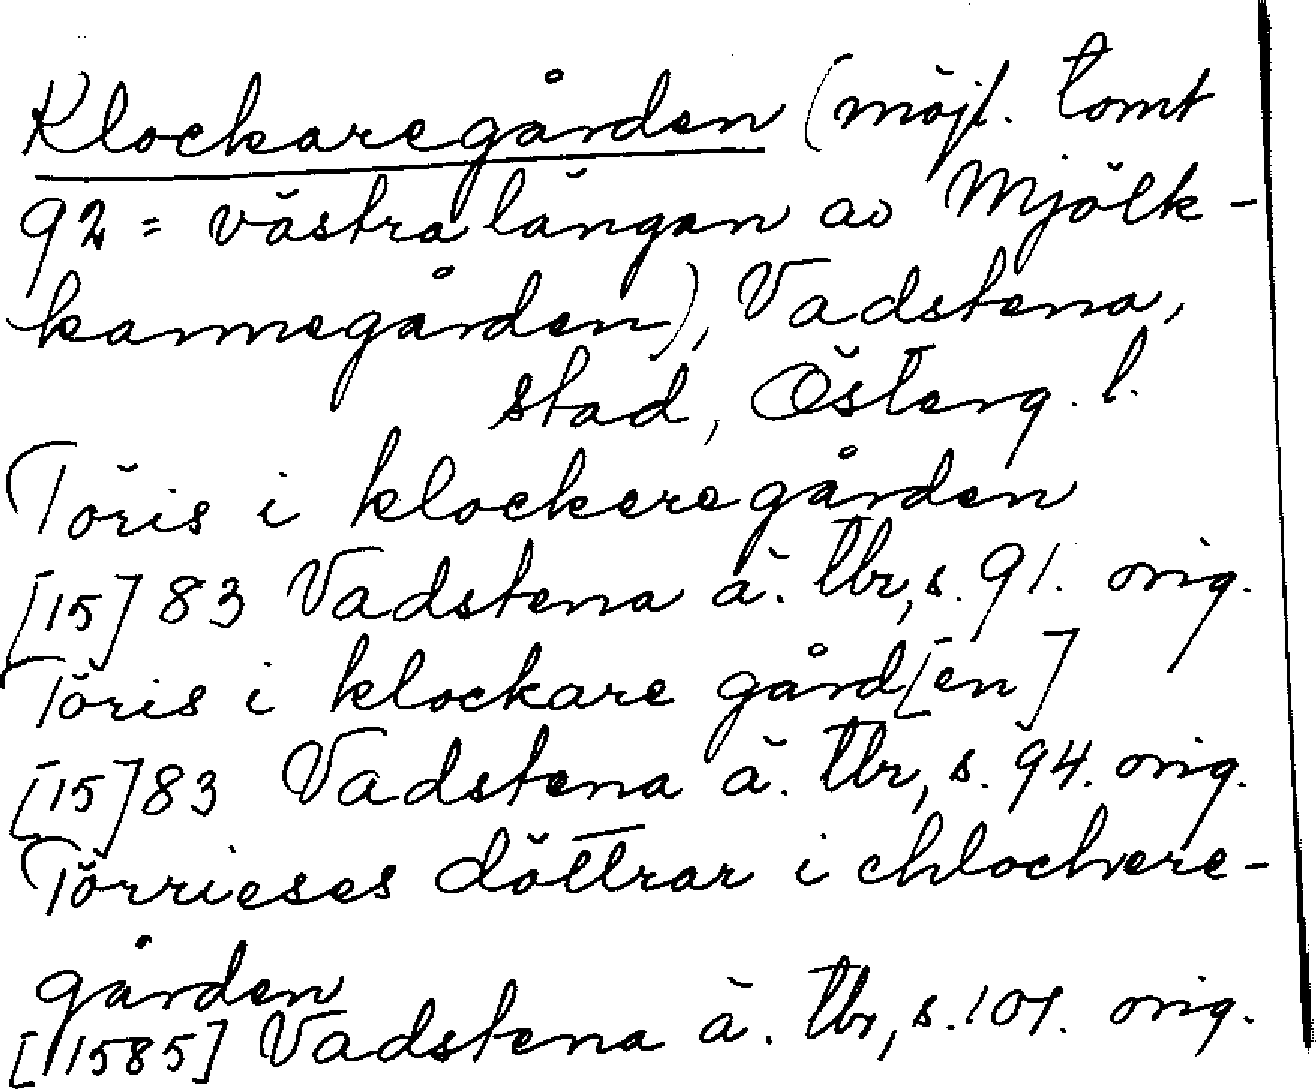 Klockaregården (möjl. tomt
92 = västra längan av Mjölk-
kannegården), Vadstena,
stad, Österg. l.
Töris i klockeregården
[15]83 Vadstena ä. tbr, s. 91. orig.
Töris i klockare gård[en]
[15]83 Vadstena ä. tbr, s. 94. orig.
Törrieses döttrar i chlochere-
gården
[1585] Vadstena ä. tbr, s. 101. orig.